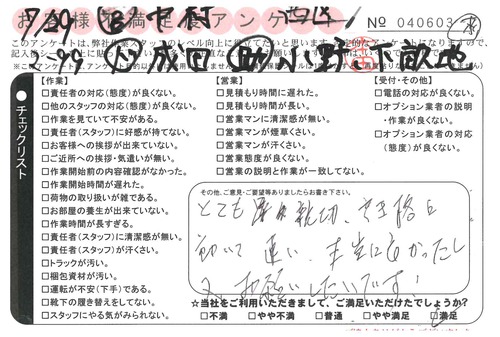 7/29 (日) 中村 西区
お客様不満足度アンケート No 040603
このアンケートは、弊社作業スタッフのレベル向上に役立てたいと思います。
成田 小野 下
チェックリスト
【作業】
□責任者の対応(態度)が良くない。
□他のスタッフの対応(態度)が良くない。
□作業を見ていて不安がある。
□責任者(スタッフ)に好感が持てない。
□お客様への挨拶が出来ていない。
□ご近所への挨拶・気遣いが無い。
□作業開始前の内容確認がなかった。
□作業開始時間が遅れた。
□荷物の取り扱いが雑である。
□お部屋の養生が出来ていない。
□作業時間が長すぎる。
□責任者(スタッフ)に清潔感が無い。
□責任者(スタッフ)が汗くさい。
□トラックが汚い。
□梱包資材が汚い。
□運転が不安(下手)である。
□靴下の履き替えをしてない。
□スタッフにやる気がみられない。
【営業】
□見積もり時間に遅れた。
□見積もり時間が長い。
□営業マンに清潔感が無い。
□営業マンが煙草くさい。
□営業マンが汗くさい。
□営業態度が良くない。
□営業の説明と作業が一致してない。
【受付・その他】
□電話の対応が良くない。
□オプション業者の説明
・作業が良くない。
□オプション業者の対応
(態度)が良くない。
その他、ご意見・ご要望等ありましたらお書き下さい。
とても 親切、
動いて 速い、本当に良かったし
又、お願いしたいです!
☆当社をご利用いただきまして、ご満足いただけたでしょうか?
□不満 □やや不満 □普通 □やや満足 □満足